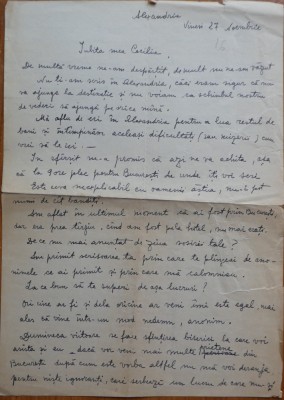 Alexandria
Vineri 27 Noembrie
Iubita mea Cecilia,
De multă vreme ne-am despărțit, de mult nu ne-am văzut
Nu ți-am scris în Alexandria, căci eram sigur că nu
va ajunge la destinație și nu voiam ca schimbul nostru
de vederi să ajungă pe orice mână.
Mă aflu de eri în Alexandria pentru a lua restul de
bani și întâmpinăm aceleași dificultăți (sau mizerii) cum
vrei să le iei. —
În sfârșit ne-a promis că azi ne va achita, așa
că la 9 ore plec pentru București de unde îți voi scri
Este ceva inexplicabil cu oamenii ăștia, mult pot
de cât bandiți.
Am aflat în ultimul moment că ai fost prin București,
dar era prea târziu, când am fost pela hotel, nu mai erați.
De ce nu m-ai anunțat de ziua sosirii tale?
Am primit scrisoarea ta prin care te plângeai de ano-
nimele ce ai primit și prin care mă calomniau.
La ce bun să te superi de așa lucruri!
Ori cine ar fi și dela oricine ar veni îmi este egal, mai
ales că vina într-un mod nedemn, anonim.
Duminica viitoare se face sfințirea bisericii la care voi
asista și eu - dacă voi veni mai multe prietene din
București după cum este vorba altfel nu mă voi deranja
pentru niște ignoranți, cari serbează un lucru de care nu-și